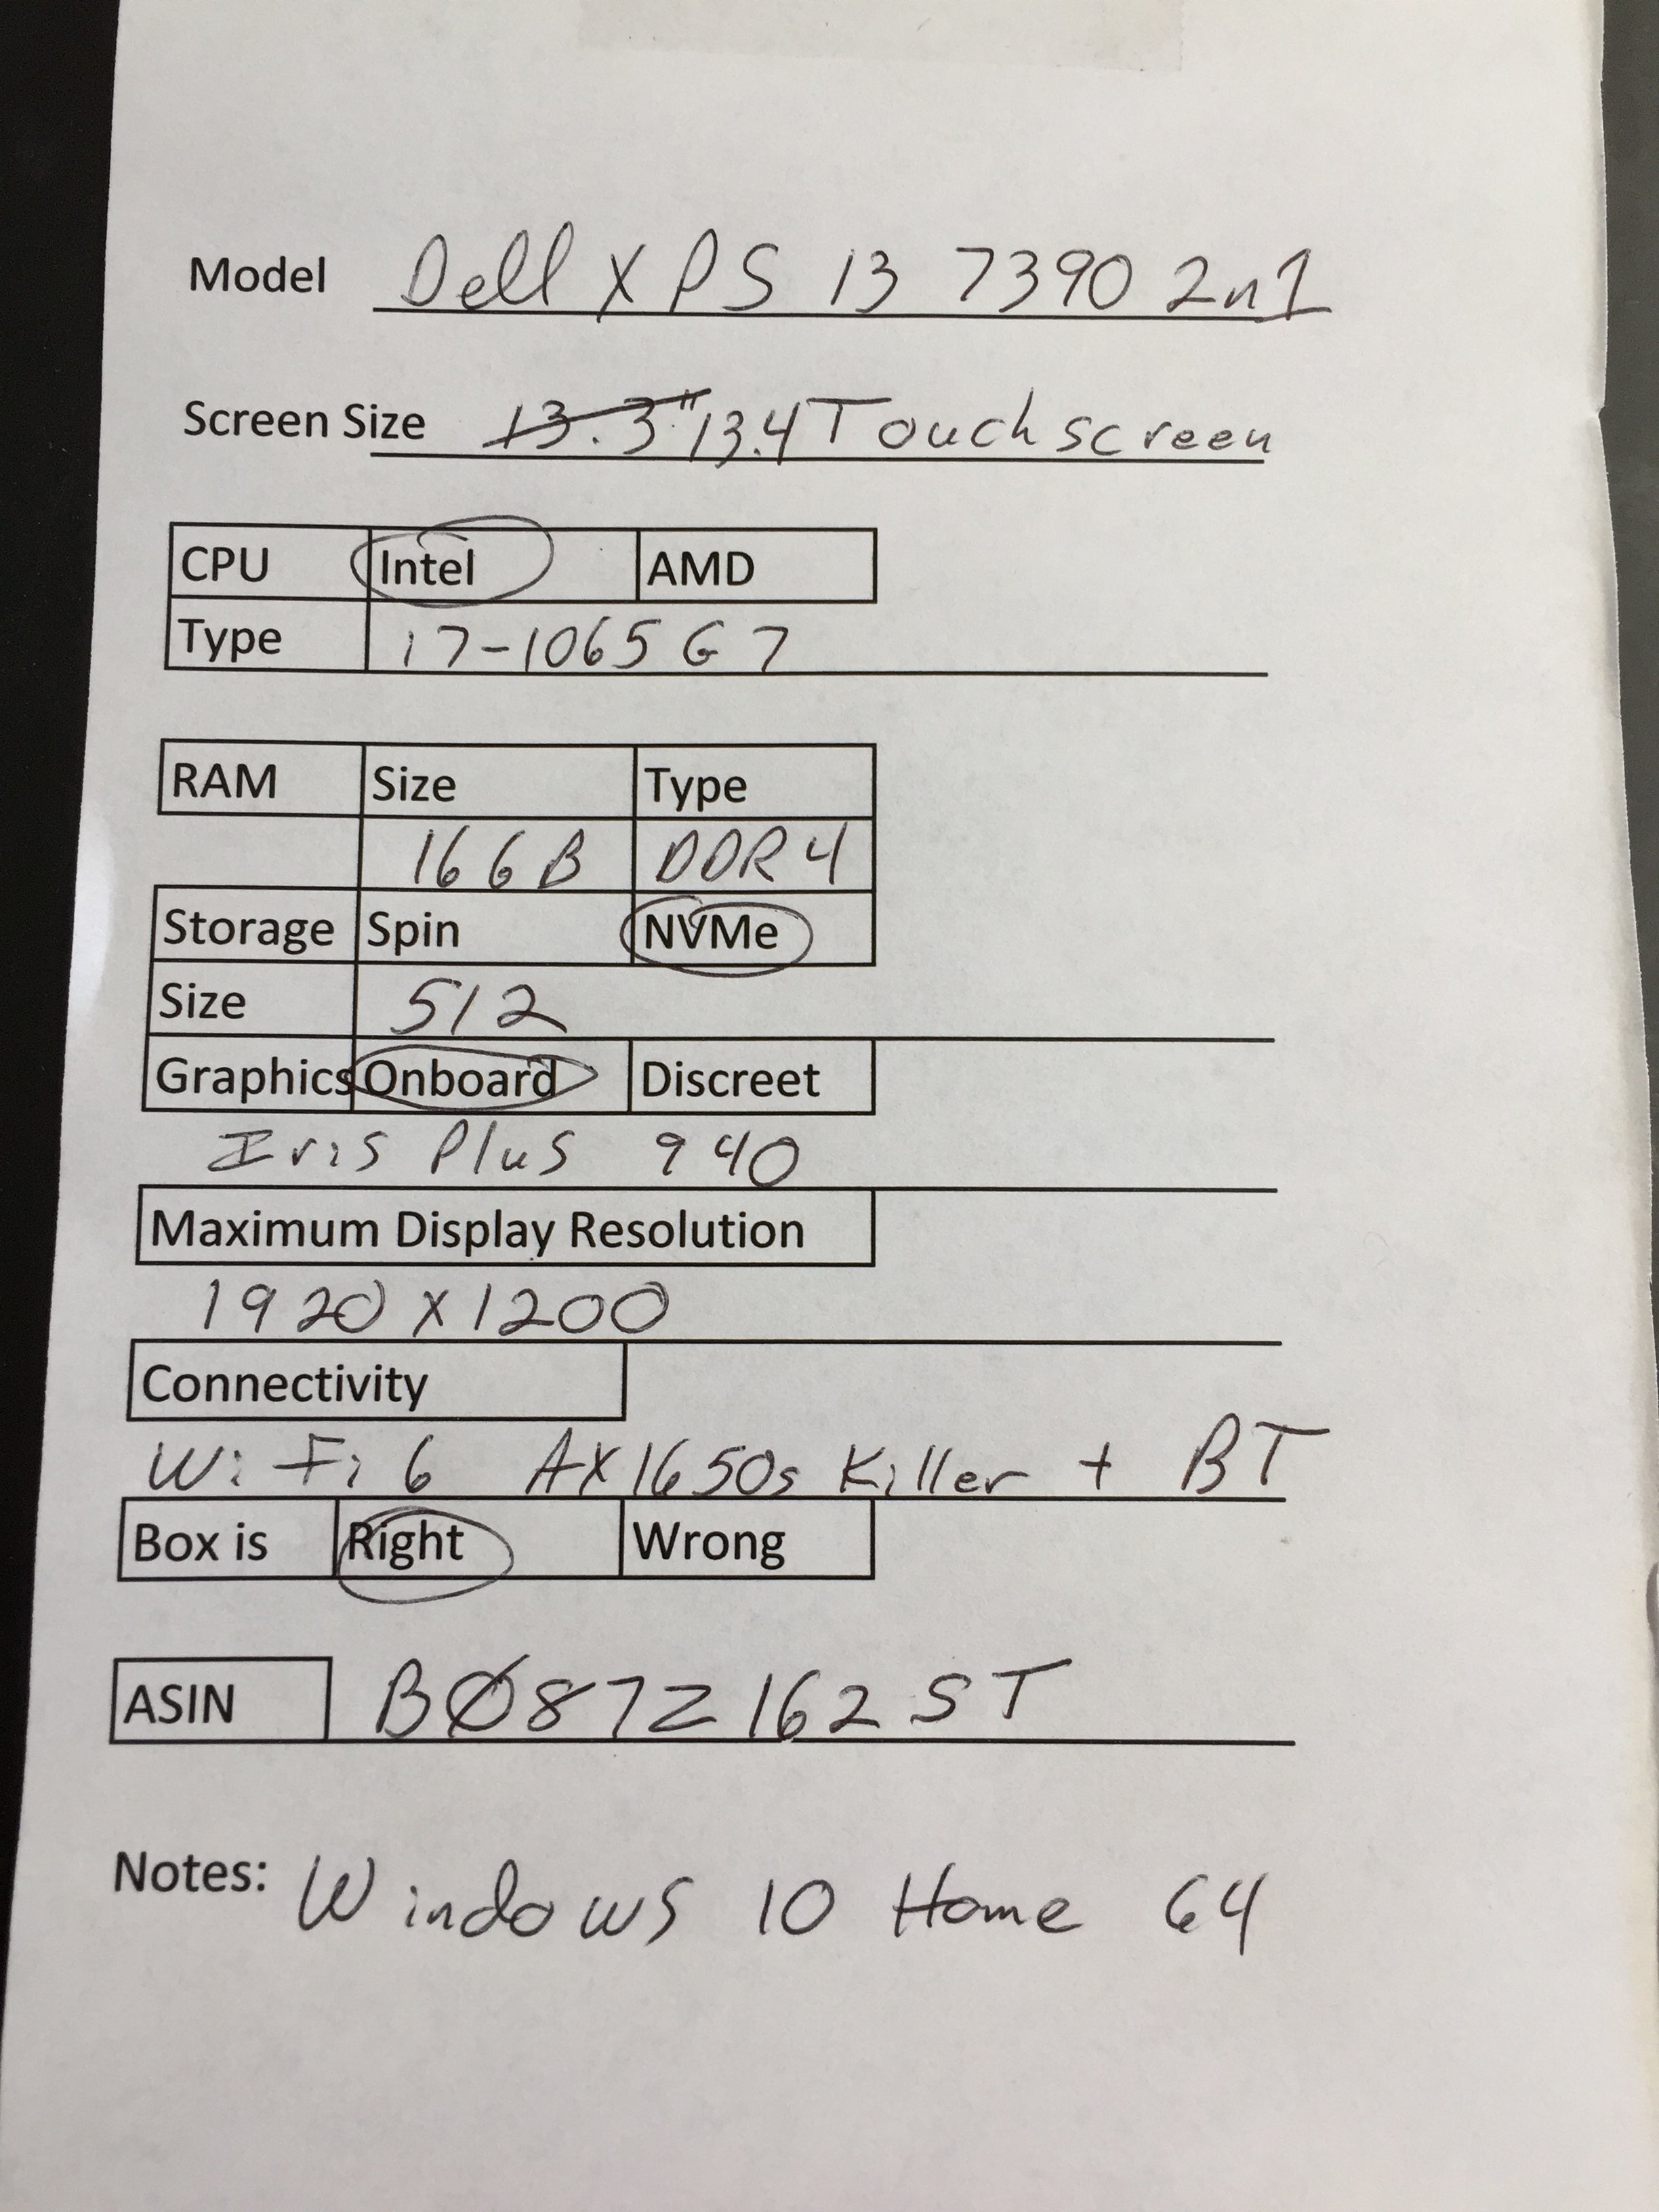 Model Dell XPS 13 7390 2n1
Screen Size 13.3" 13.4 Touchscreen
CPU Intel AMD
Type i7-1065G7
RAM Size Type
16GB DDR4
Storage Spin NVMe
Size 512
Graphics Onboard Discreet
Iris Plus 940
Maximum Display Resolution
1920 x 1200
Connectivity
WiFi 6 AX1650s Killer + BT
Box is Right Wrong
ASIN BØ87Z162ST
Notes: Windows 10 Home 64